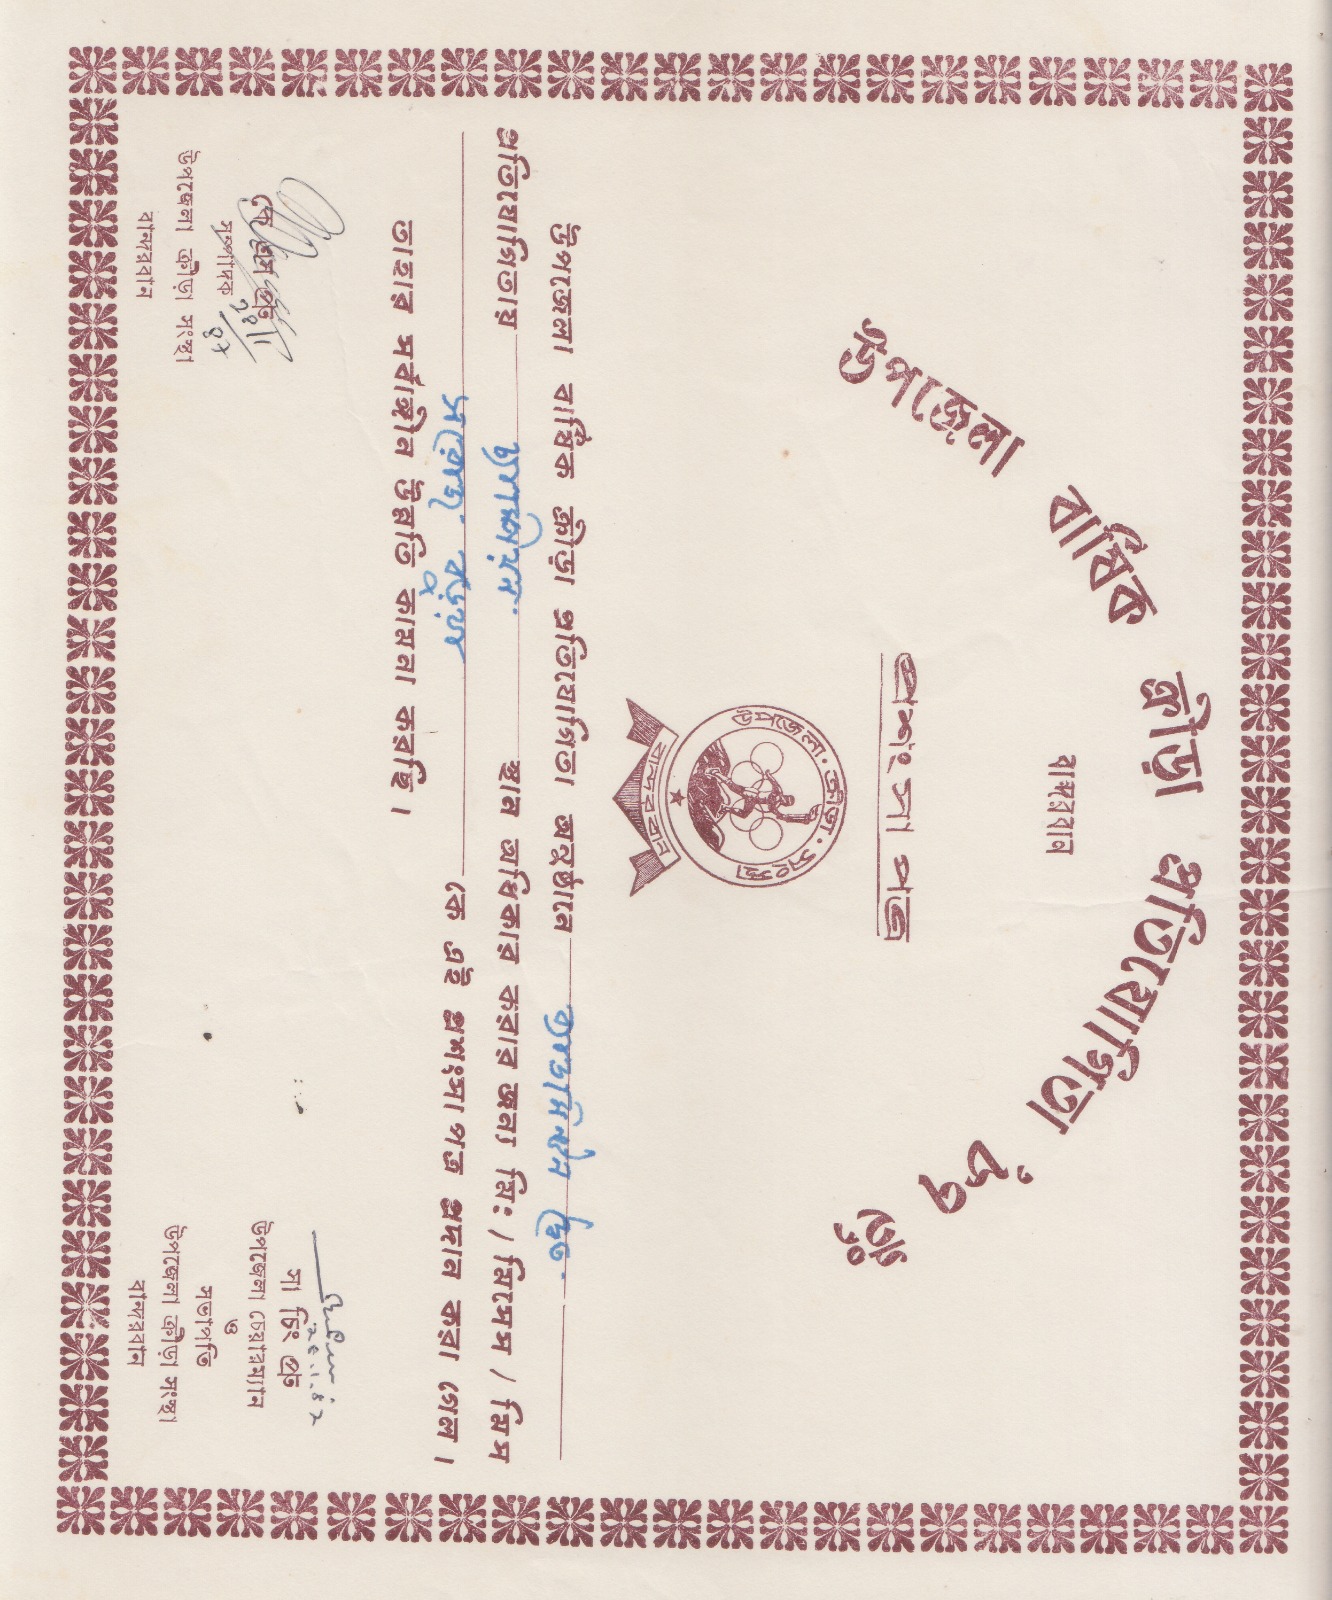 উপজেলা বার্ষিক ক্রীড়া প্রতিযোগিতা '৮৭ ইং
বান্দরবান
প্রশংসা পত্র
উপজেলা · ক্রীড়া · সংস্থা
বান্দরবান
উপজেলা বার্ষিক ক্রীড়া প্রতিযোগিতা অনুষ্ঠানে ব্যাডমিন্টন দ্বৈত
প্রতিযোগিতায় চ্যাম্পিয়ন স্থান অধিকার করার জন্য মিঃ / মিসেস / মিস
সরোজ বড়ুয়া কে এই প্রশংসা পত্র প্রদান করা গেল।
তাহার সর্বাঙ্গীন উন্নতি কামনা করছি।
কে এস প্রু
সম্পাদক
উপজেলা ক্রীড়া সংস্থা
বান্দরবান
সা চিং প্রু
উপজেলা চেয়ারম্যান
ও
সভাপতি
উপজেলা ক্রীড়া সংস্থা
বান্দরবান